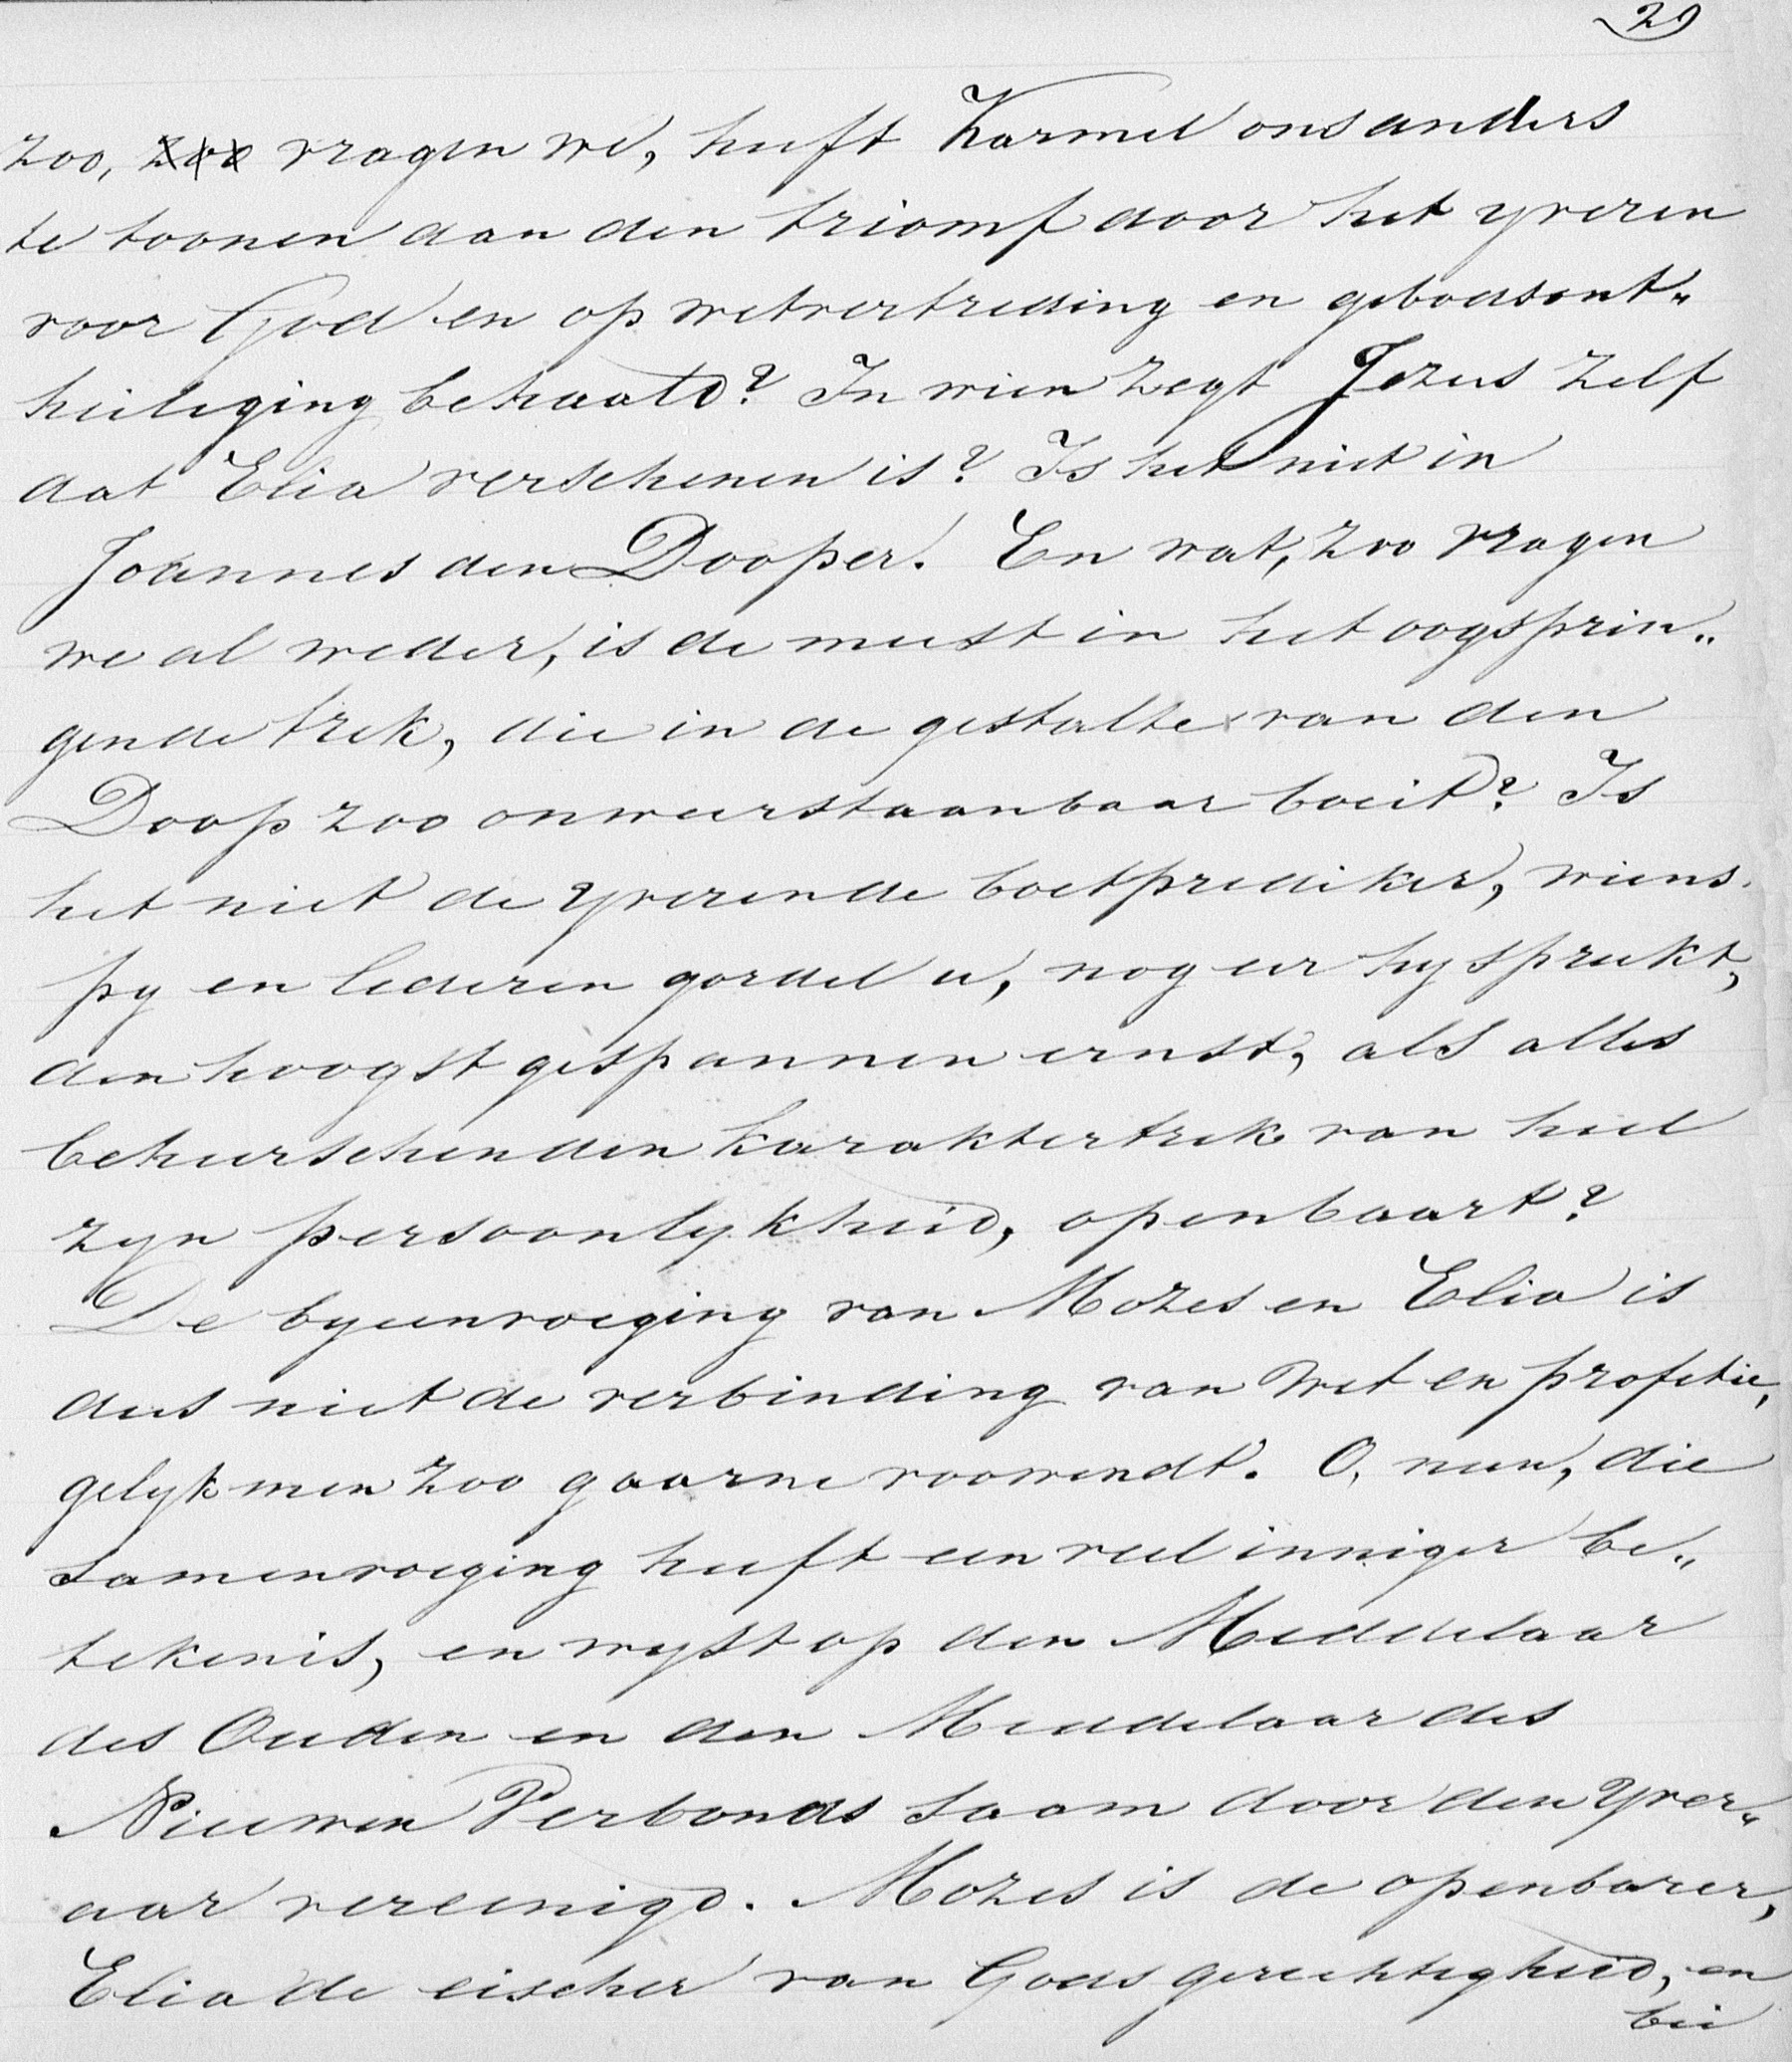 29
zoo, zoo vragen we, heeft Karmel ons anders
te toonen dan den triomf door het yveren
voor God en op wetvertreding en gebodsont„
heiliging behaald? In wien zegt Jezus zelf
dat Elia verschenen is? Is het niet in
Joannes den Dooper. En wat, zoo vragen
we al weder, is de meest in het oogsprin„
gende trek, die in de gestalte van den
Doop zoo onweerstaanbaar boeit? Is
het niet de yverende boetprediker, wiens
py en lederen gordel u, nog eer hy spreekt,
den hoogst gespannen ernst, als alles
beheerschenden karaktertrek van heel
zyn persoonlykheid, openbaart?
De byeenvoeging van Mozes en Elia is
dus niet de verbinding van Wet en profetie,
gelyk men zoo gaarne voorwendt. O, neen, die
samenvoeging heeft een veel inniger be„
tekenis, en wyst op den Middelaar
des Ouden en den Middelaar des
Nieuwen Verbonds saam door den Yver„
aar vereenigd. Mozes is de openbarer,
Elia de eischer van Gods gerechtigheid, en
bei